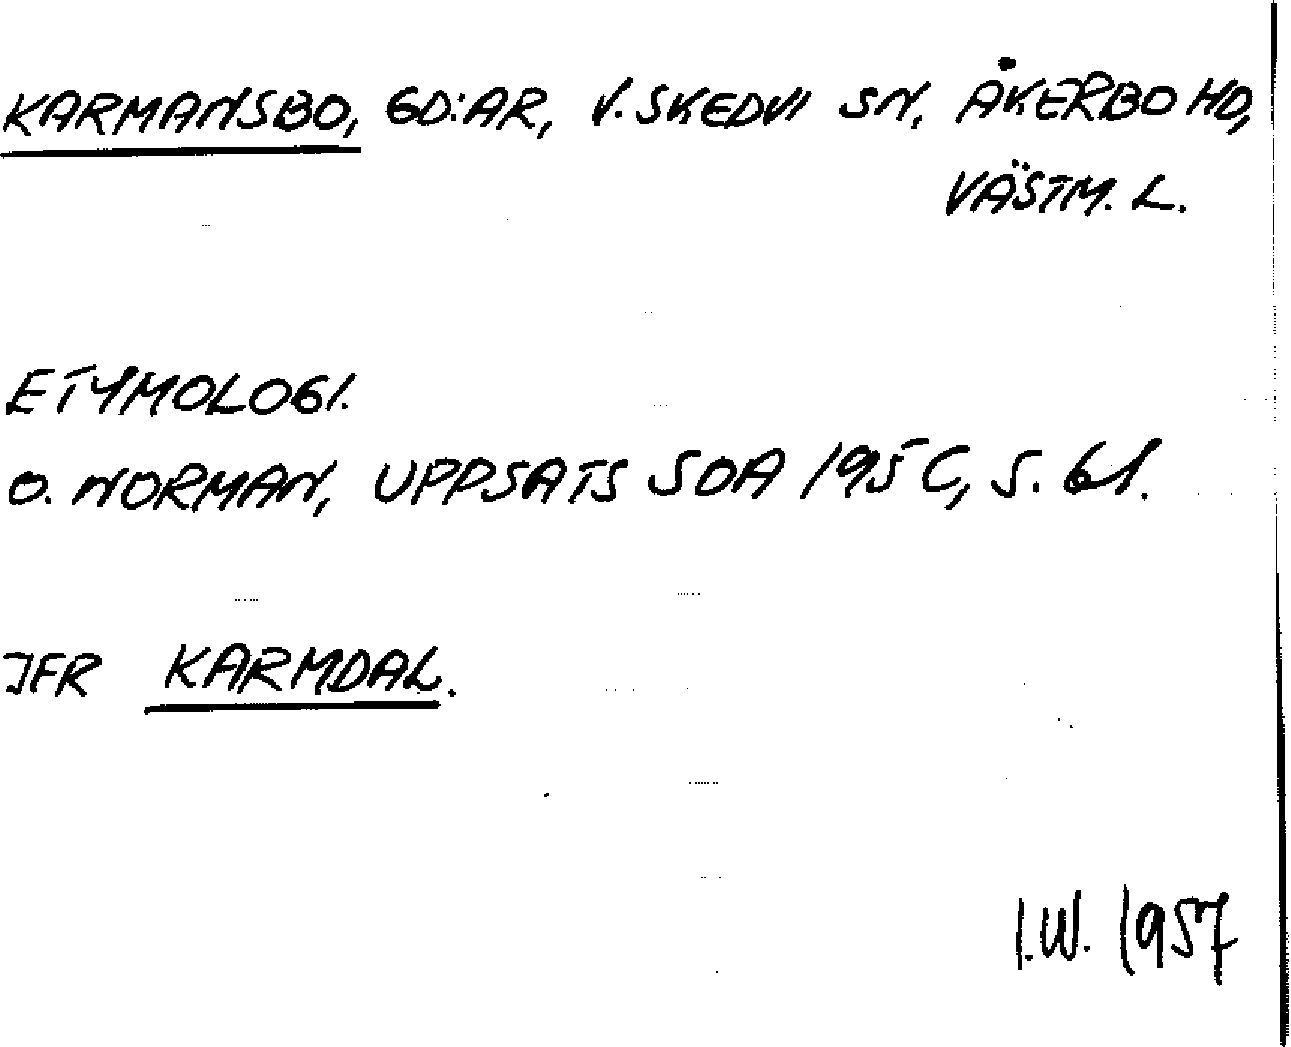 KARMANSBO, GD:AR, V. SKEDVI SN, ÅKERBO HD,
VÄSTM. L.
ETYMOLOGI.
O. NORMAN, UPPSATS SOA 195C, S. 61.
JFR KARMDAL.
I.W. 1957